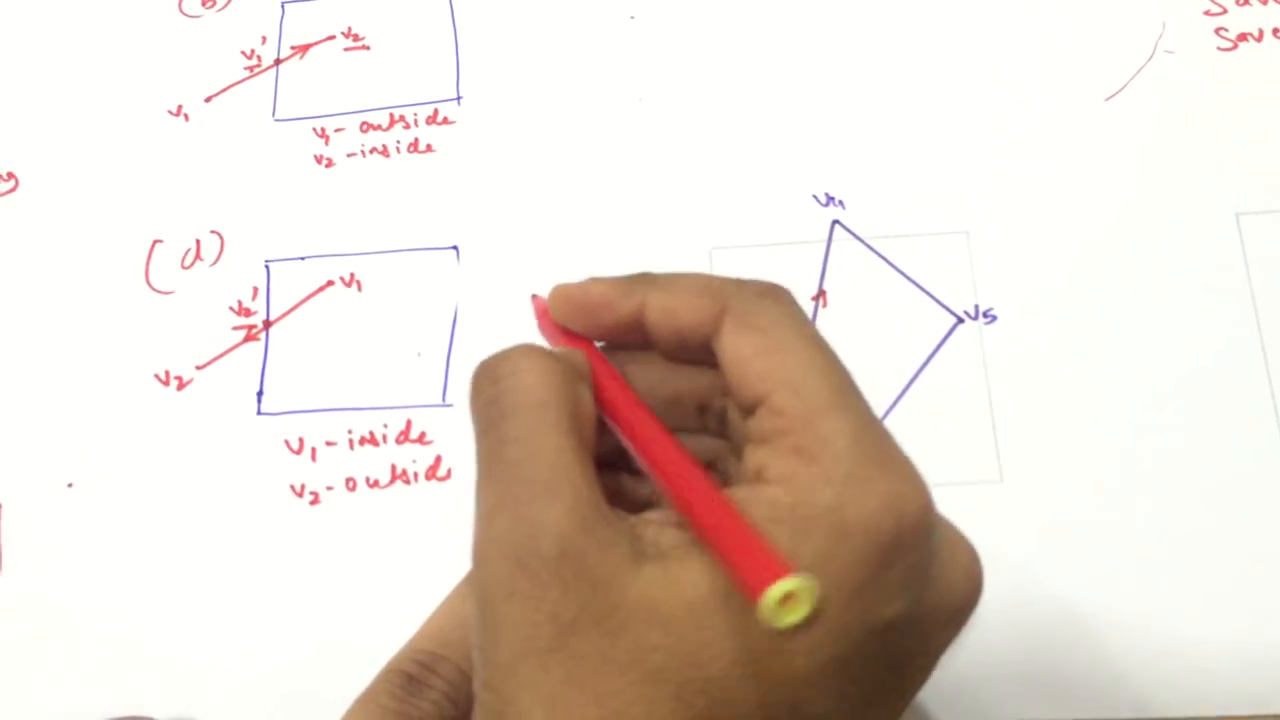 (b)
V1'
V2
V1
V1- outside
V2 -inside
(d)
V1
V2'
V2
V1 -inside
V2- outside
V4
V5